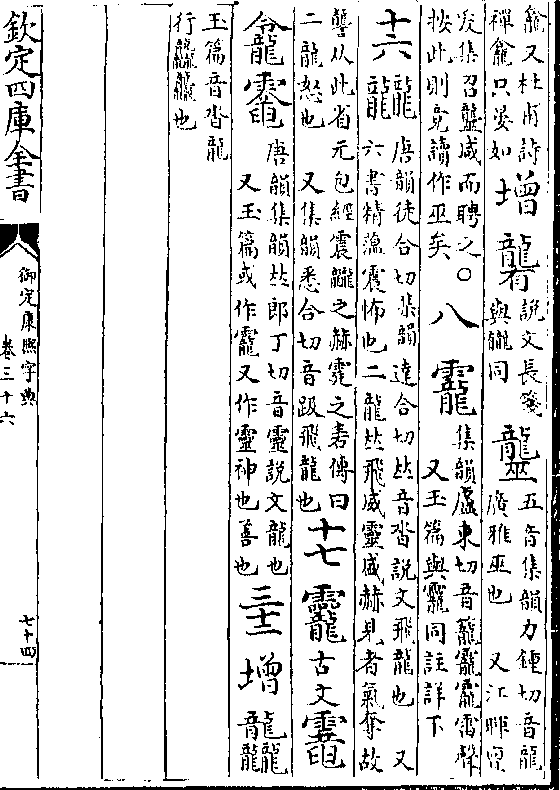 龕又杜甫詩
禪龕只晏如
增
說文長箋
與朧同
五音集韻力鍾切音龍
廣雅巫也 又江暉
集召 咸而聘之○
按此則竟讀作巫矣
八
靇
集韻盧東切音籠靇靇雷聲
又玉篇與龗同註詳下
十六
龖
唐韻徒合切集韻達合切𠀤音沓說文飛龍也 又
六書精薀震怖也二龍𠀤飛威靈盛赫見者氣奪故
讋从此省元包經震龖之赫霆之砉傳曰
二龍怒也 又集韻悉合切音趿飛龍也
十七
龗
古文
唐韻集韻𠀤郎丁切音靈說文龍也
又玉篇或作靇又作靈神也善也
三十二
增
龘
玉篇音沓龍
行龘龘也
欽定四庫全書
御定康熙字典
卷三十六
七十四